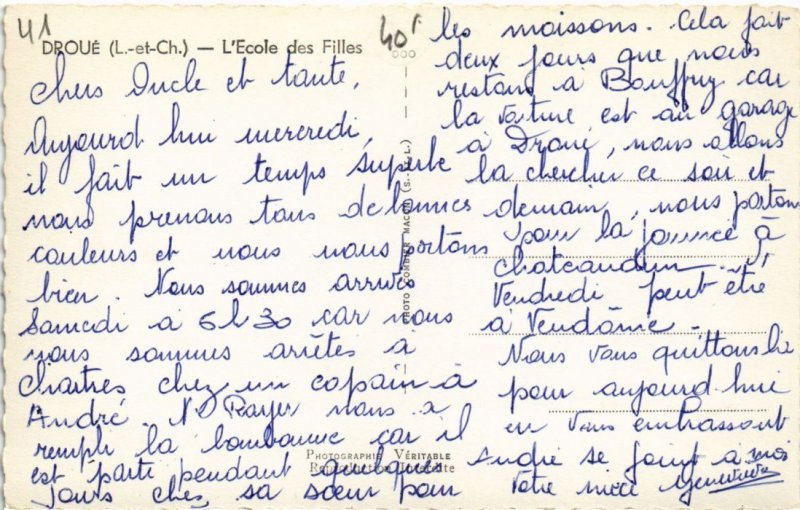 41
40f
DROUÉ (L.-et-Ch.) — L'Ecole des Filles
Chers Oncle et tante,
Aujourd hui mercredi,
il fait un temps superbe
nous prenons tous de bonnes
couleurs et nous nous portons
bien. Nous sommes arrivés
Samedi à 6h30 car nous
nous sommes arrêtés à
Chartres chez un copain à
André. Mr Rayer nous a
rempli la bonbonne car il
est parti pendant quelques
jours chez sa sœur pour
les moissons. Cela fait
deux jours que nous
restons à Bouffry car
la voiture est au garage
à Droué, nous allons
la chercher ce soir et
demain, nous partons
pour la journée à
Chateaudun.
Vendredi peut être
à Vendôme.
Nous vous quittons
pour aujourd hui
en vous embrassant
André se joint à moi
Votre nièce Geneviève
PHOTO COMBIER MACON (S.-&-L.)
PHOTOGRAPHIE VÉRITABLE
Reproduction Interdite